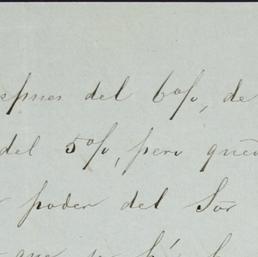 spues del 6%, de
del 5%, pero que
poder del Sor
que se há